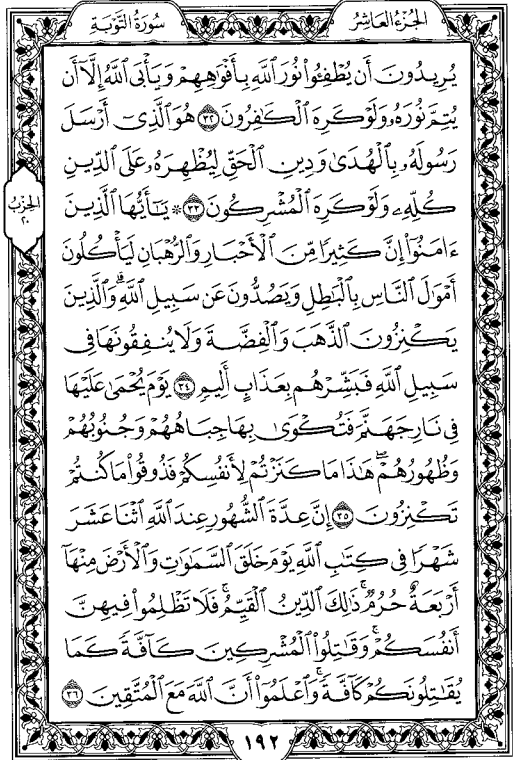 الجزء العاشر
سورة التوبة
يُرِيدُونَ أَن يُطْفِـُٔوا۟ نُورَ ٱللَّهِ بِأَفْوَٰهِهِمْ وَيَأْبَى ٱللَّهُ إِلَّآ أَن
يُتِمَّ نُورَهُۥ وَلَوْ كَرِهَ ٱلْكَـٰفِرُونَ ٣٢ هُوَ ٱلَّذِىٓ أَرْسَلَ
رَسُولَهُۥ بِٱلْهُدَىٰ وَدِينِ ٱلْحَقِّ لِيُظْهِرَهُۥ عَلَى ٱلدِّينِ
كُلِّهِۦ وَلَوْ كَرِهَ ٱلْمُشْرِكُونَ ٣٣ ۞ يَـٰٓأَيُّهَا ٱلَّذِينَ
الحزب
٢٠
ءَامَنُوٓا۟ إِنَّ كَثِيرًا مِّنَ ٱلْأَحْبَارِ وَٱلرُّهْبَانِ لَيَأْكُلُونَ
أَمْوَٰلَ ٱلنَّاسِ بِٱلْبَـٰطِلِ وَيَصُدُّونَ عَن سَبِيلِ ٱللَّهِ ۗ وَٱلَّذِينَ
يَكْنِزُونَ ٱلذَّهَبَ وَٱلْفِضَّةَ وَلَا يُنفِقُونَهَا فِى
سَبِيلِ ٱللَّهِ فَبَشِّرْهُم بِعَذَابٍ أَلِيمٍ ٣٤ يَوْمَ يُحْمَىٰ عَلَيْهَا
فِى نَارِ جَهَنَّمَ فَتُكْوَىٰ بِهَا جِبَاهُهُمْ وَجُنُوبُهُمْ
وَظُهُورُهُمْ ۖ هَـٰذَا مَا كَنَزْتُمْ لِأَنفُسِكُمْ فَذُوقُوا۟ مَا كُنتُمْ
تَكْنِزُونَ ٣٥ إِنَّ عِدَّةَ ٱلشُّهُورِ عِندَ ٱللَّهِ ٱثْنَا عَشَرَ
شَهْرًا فِى كِتَـٰبِ ٱللَّهِ يَوْمَ خَلَقَ ٱلسَّمَـٰوَٰتِ وَٱلْأَرْضَ مِنْهَآ
أَرْبَعَةٌ حُرُمٌ ۚ ذَٰلِكَ ٱلدِّينُ ٱلْقَيِّمُ ۚ فَلَا تَظْلِمُوا۟ فِيهِنَّ
أَنفُسَكُمْ ۚ وَقَـٰتِلُوا۟ ٱلْمُشْرِكِينَ كَآفَّةً كَمَا
يُقَـٰتِلُونَكُمْ كَآفَّةً ۚ وَٱعْلَمُوٓا۟ أَنَّ ٱللَّهَ مَعَ ٱلْمُتَّقِينَ ٣٦
١٩٢